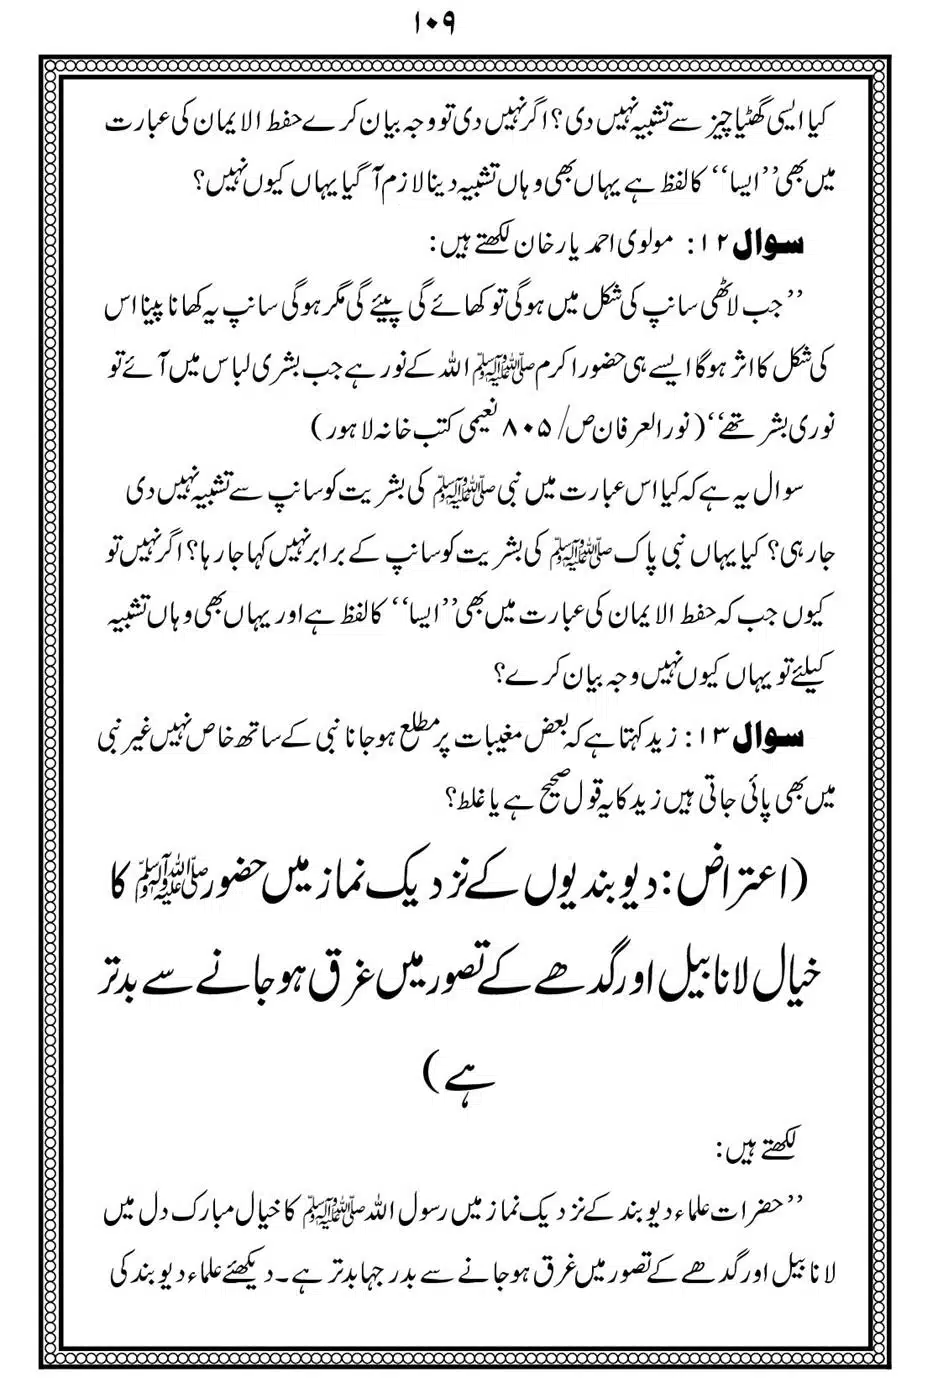 ۱۰۹
کیا ایسی گھٹیا چیز سے تشبیہ نہیں دی؟ اگر نہیں دی تو وجہ بیان کرے حفظ الایمان کی عبارت
میں بھی ’’ایسا‘‘ کا لفظ ہے یہاں بھی وہاں تشبیہ دینا لازم آ گیا یہاں کیوں نہیں؟
سوال ۱۲: مولوی احمد یار خان لکھتے ہیں:
’’جب لاٹھی سانپ کی شکل میں ہوگی تو کھائے گی پیئے گی مگر ہوگی سانپ یہ کھانا پینا اس
کی شکل کا اثر ہوگا ایسے ہی حضور اکرم ﷺ اللہ کے نور ہے جب بشری لباس میں آئے تو
نوری بشر تھے‘‘ (نور العرفان ص/ ۸۰۵ نعیمی کتب خانہ لاہور)
سوال یہ ہے کہ کیا اس عبارت میں نبی ﷺ کی بشریت کو سانپ سے تشبیہ نہیں دی
جارہی؟ کیا یہاں نبی پاک ﷺ کی بشریت کو سانپ کے برابر نہیں کہا جارہا؟ اگر نہیں تو
کیوں جب کہ حفظ الایمان کی عبارت میں بھی ’’ایسا‘‘ کا لفظ ہے اور یہاں بھی وہاں تشبیہ
کیلئے تو یہاں کیوں نہیں وجہ بیان کرے؟
سوال ۱۳: زید کہتا ہے کہ بعض مغیبات پر مطلع ہوجانا نبی کے ساتھ خاص نہیں غیر نبی
میں بھی پائی جاتی ہیں زید کا یہ قول صحیح ہے یا غلط؟
(اعتراض: دیوبندیوں کے نزدیک نماز میں حضور ﷺ کا
خیال لانا بیل اور گدھے کے تصور میں غرق ہوجانے سے بدتر
ہے)
لکھتے ہیں:
’’حضرات علماء دیوبند کے نزدیک نماز میں رسول اللہ ﷺ کا خیال مبارک دل میں
لانا بیل اور گدھے کے تصور میں غرق ہوجانے سے بدرجہا بدتر ہے۔ دیکھئے علماء دیوبند کی